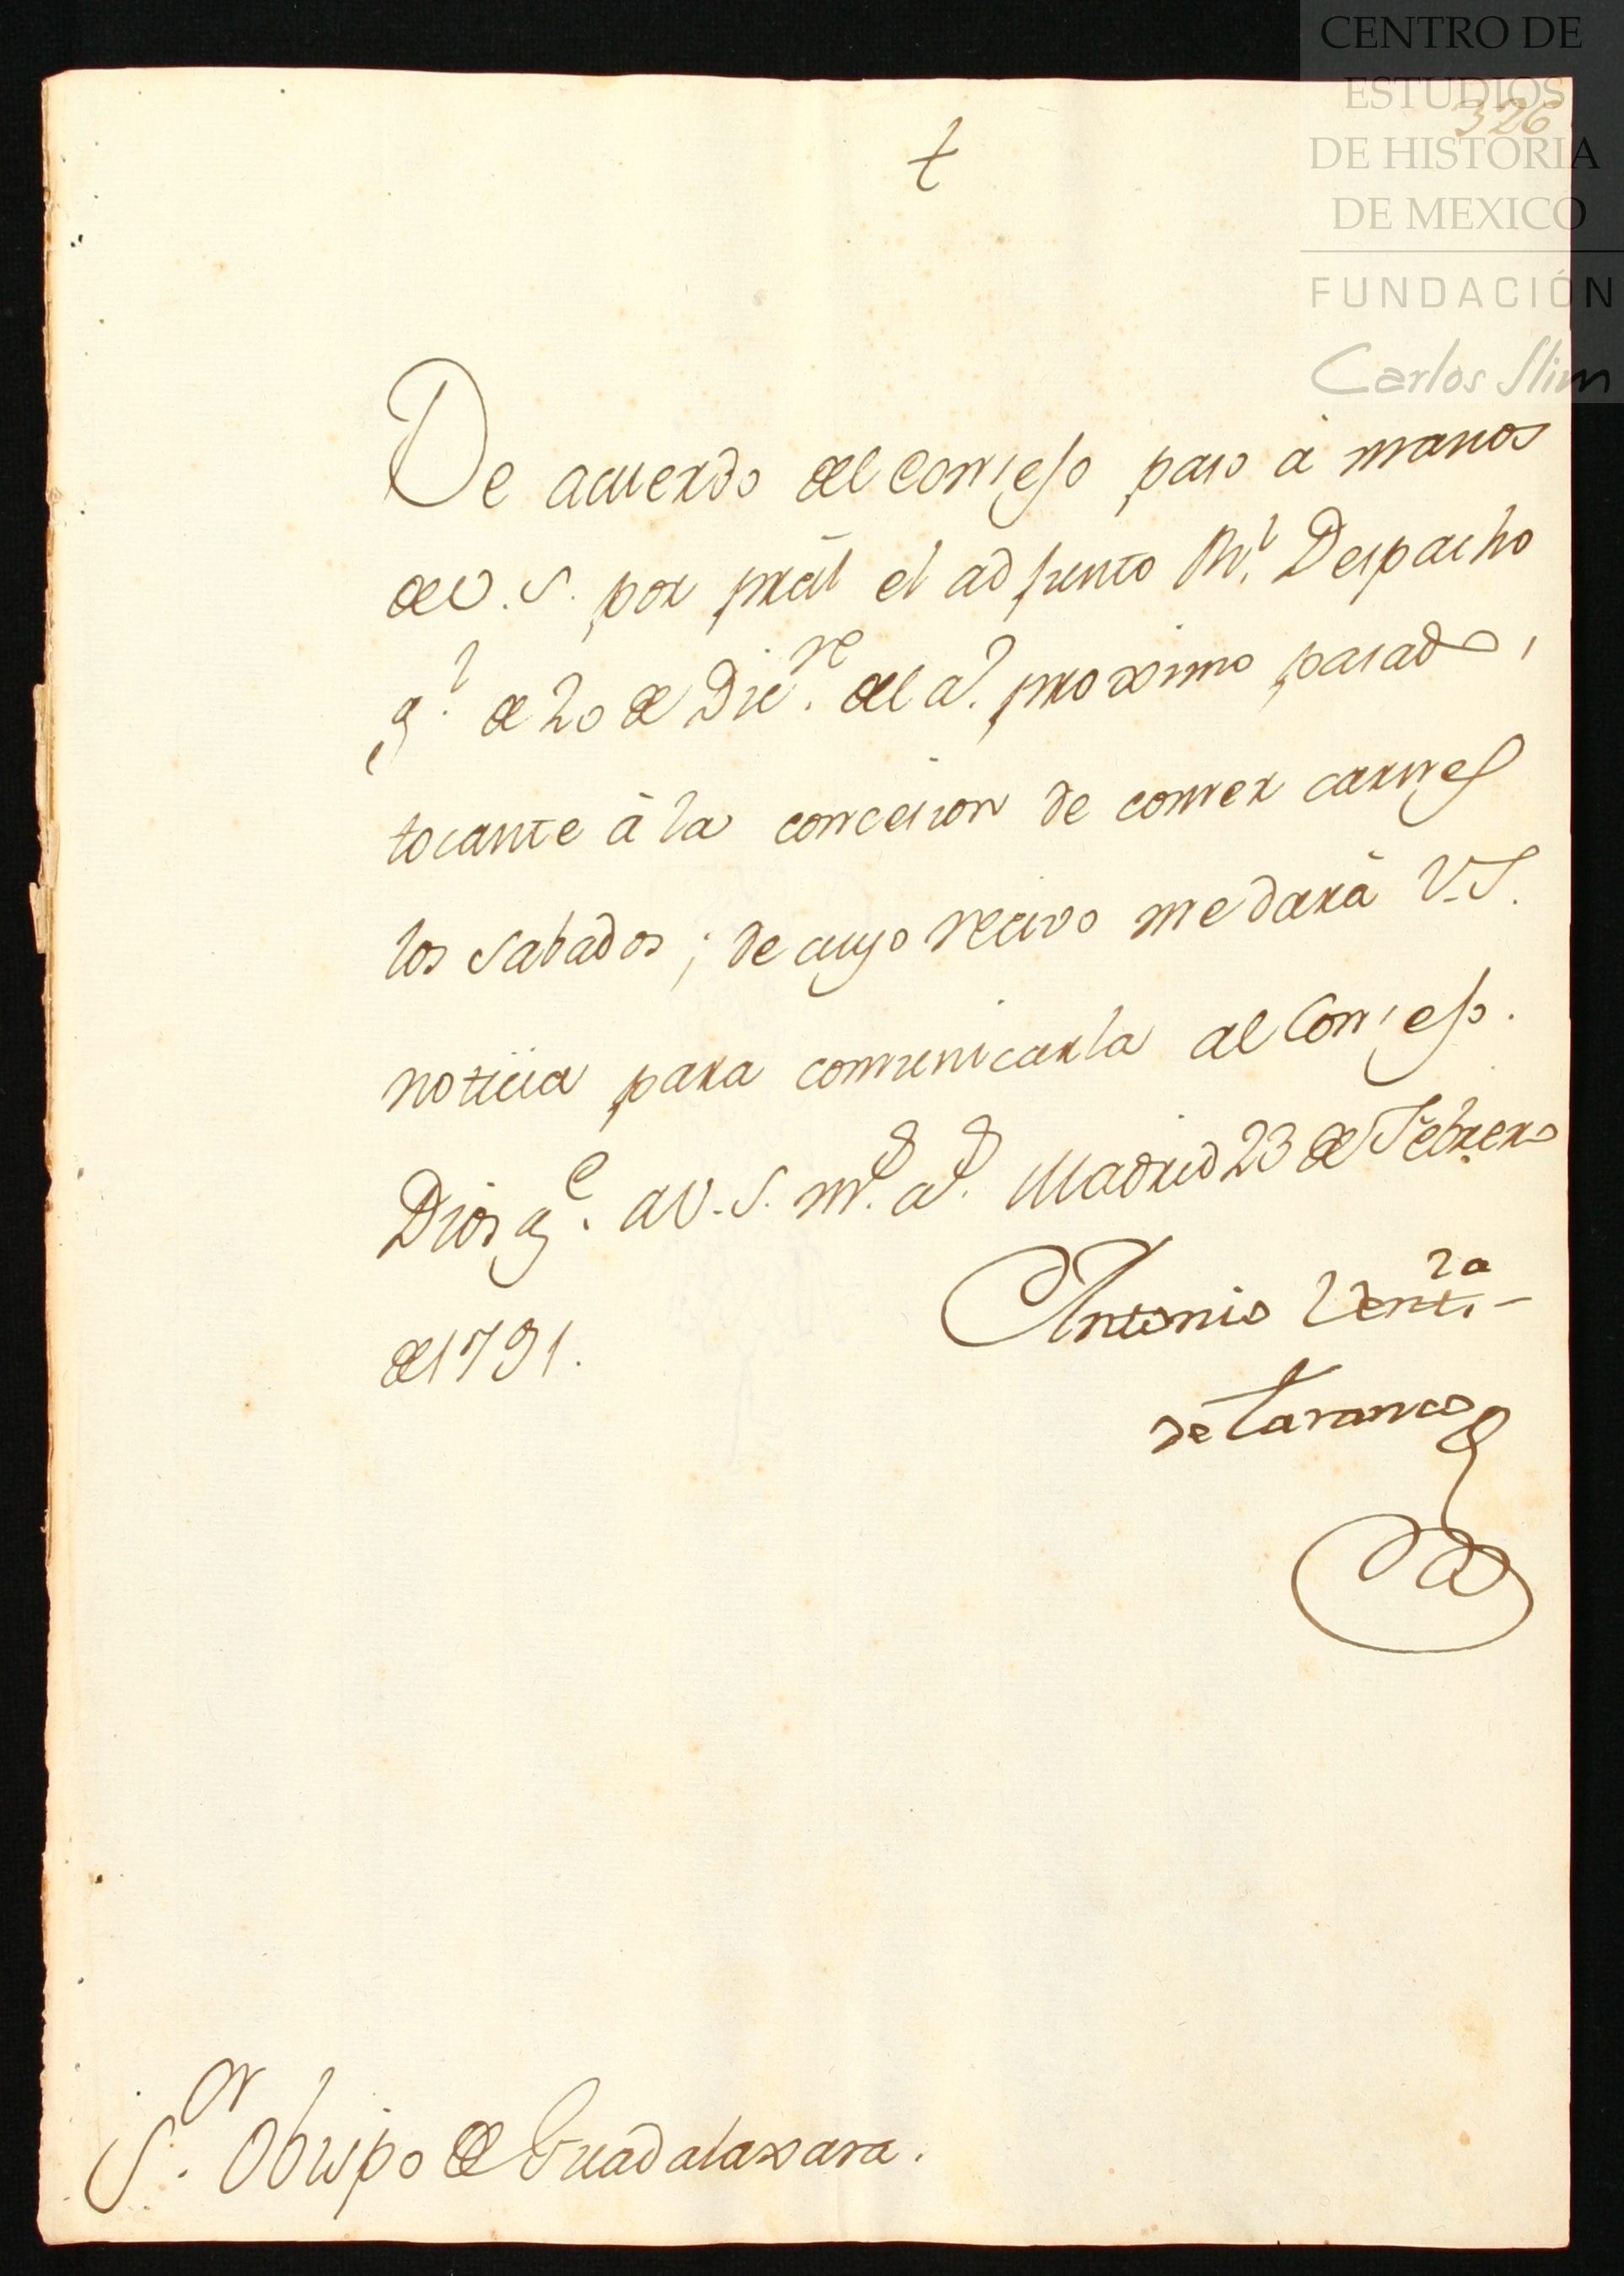 CENTRO DE
ESTUDIOS
DE HISTORIA
DE MEXICO
FUNDACIÓN
Carlos Slim
326
†
De acuerdo del Consejo paso à manos
de V. S. por pràl el adjunto Rl. Despacho
gl. de 20 de Dicre. del ao. proximo pasado,
tocante à la concesion de comer carnes
los Sabados; de cuyo recivo me darà V.S.
noticia para comunicarla al Consejo.
Dios gue. a V. S. ms. as. Madrid 23 de Febrero
de 1791.
Antonio Venta.
de Taranco
Sor. Obispo de Guadalaxara.